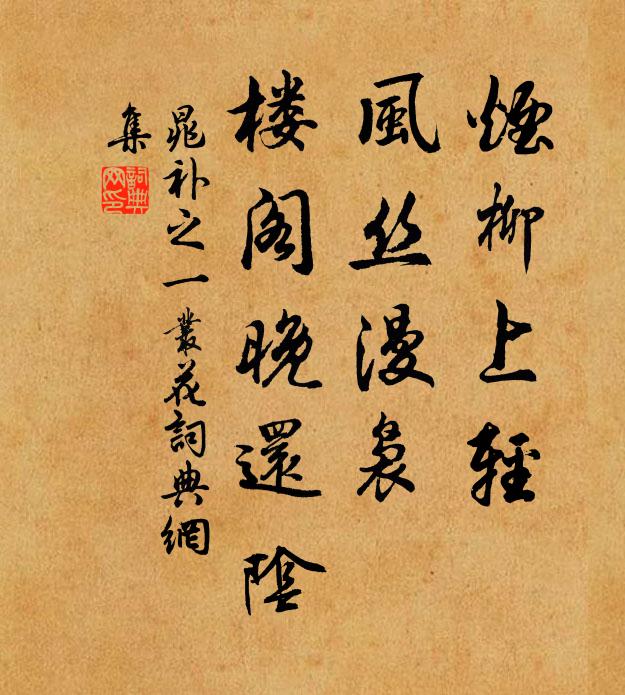 煙柳上輕
風丝漫裊
楼阁晚還陰
晁补之一叢花詞典網
集
詞典网印